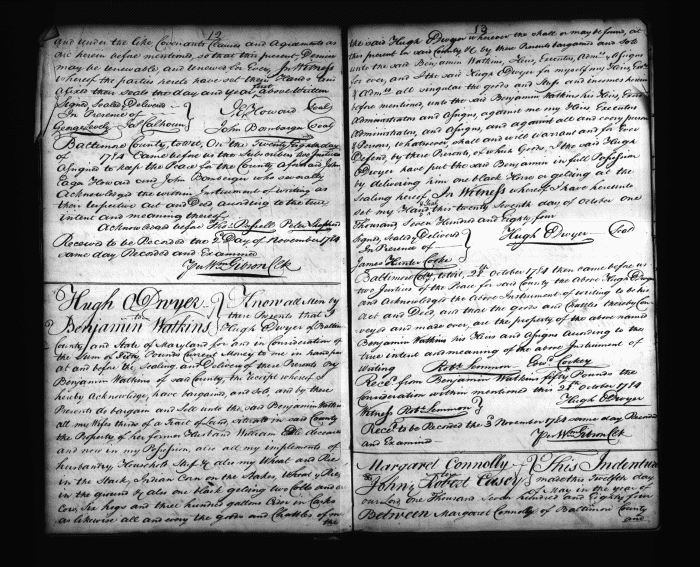 12
and under the like Covenants Clauses and Agreements as
are herein before mentioned, so that this present Demise
may be renewable and renewed for Ever. In Witness
whereof the parties hereto have set their Hands and
affixed their Seals the day and Year first above Written
Signed Sealed Delivered
In Presence of
J. E. Howard Seal
George Levely Jas Calhoun
John Bamberger Seal
Baltimore County, to wit, On the Twenty Eighth day
of 1784 Came before us the Subscribers two Justices
Assigned to keep the Peace for the County aforesaid John
Eager Howard and John Bamberger who severally
Acknowledged the within Instrument of writing as
their respective Act and Deed according to the true
intent and meaning thereof
Acknowledged before Thos Russell Peter Shepherd
Received to be Recorded the 2 Day of November 1784
same day Recorded and Examined
Wm Gibson Clk
Hugh O Dwyer
to
Benjamin Watkins
Know all Men by
these Presents that I
Hugh Dwyer of Baltimore
County, and State of Maryland for and in Consideration of
the Sum of Fifty Pounds Current Money to me in hand paid
at and before the Sealing and Delivery of these Presents By
Benjamin Watkins of said County, the Receipt whereof I
hereby Acknowledge, have bargained, and Sold, and by these
Presents do bargain and Sell unto the said Benjamin Watkins
all my Wifes thirds of a Tract of Land situate in said County
the Property of her former Husband William deceased
and now in my Possession, also all my implements of
husbandry, Household Stuff & also my Wheat and Rie
in the Stack, Indian Corn on the Stalks, Wheat & Rie
in the ground & also one black gelding two Colts and a
Cow, Six hogs and three hundred gallons in Casks
as likewise all and every the goods and Chattles of me
the
13
the said Hugh O Dwyer wherever the shall or may be found, at
this present in said County & by these Presents bargained and Sold
unto the said Benjamin Watkins, Heirs, Executors, Adms & Assigns
for ever, and I the said Hugh O Dwyer for myself my Heirs, Exrs
& Adms all singular the goods and Stuff and incomes herein
before mentioned, unto the said Benjamin Watkins his Heirs, Executors
Administrators and Assigns, against me my Heirs Executors
Administrators, and Assigns, and against all and every person
& Persons, whatsoever, shall and will warrant and for Ever
Defend, by these Presents, of which Goods, I the said Hugh
O Dwyer have put the said Benjamin in full Possession
by delivering him one black Horse or gelding at the
Sealing hereof, In Witness whereof I have hereunto
set my Hand & Seal this twenty Seventh day of October one
Thousand, Seven Hundred and Eighty four
Signed, Sealed, Delivered
Hugh O Dwyer Seal
In Presence of
James Hunter Cooke
Baltimore Coty, to wit, 28th October 1784 then came before us
two Justices of the Peace for said County the Above Hugh Dwyer
and Acknowledged the Above Instrument of writing to be his
Act and Deed, and that the goods and Chattles thereby Con-
veyed and made over, are the property of the above named
Benjamin Watkins his Heirs and Assigns According to the
true intent and meaning of the above Instrument of
Writing Robt Lemmon Edwd Cockey
Recd from Benjamin Watkins Fifty Pounds the
Consideration within mentioned this 28th October 1784
Hugh O Dwyer
Witness Robt Lemmon
Recd to be Recorded the 3d November 1784 same day Recorded
and Examined
Wm Gibson Clk
Margaret Connolly
to Lease
John Robert Casey
This Indenture
made this Twelfth day
of May in the year of
our Lord one Thousand Seven hundred and Eighty four
Between Margaret Connolly of Baltimore County
and